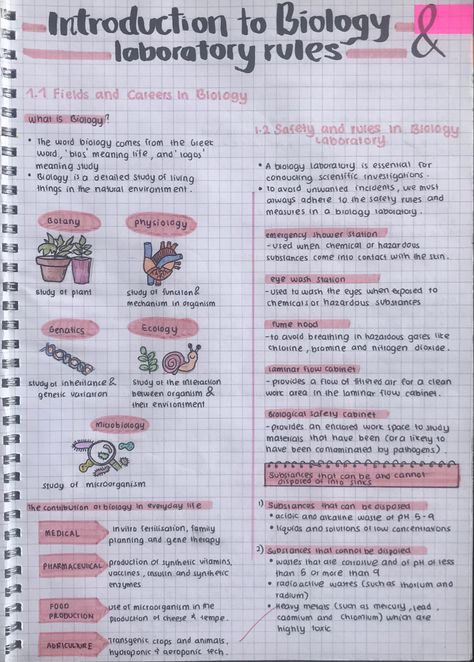 Introduction to Biology &
laboratory rules
1.1 Fields and Careers in Biology
What is Biology?
• The word biology comes from the Greek
word, 'bios' meaning life, and 'logos'
meaning study
• Biology is a detailed study of living
things in the natural environment.
Botany
study of plant
physiology
study of function &
mechanism in organism
Genetics
study of inheritance &
genetic variation
Ecology
study of the interaction
between organism &
their environment
microbiology
study of microorganism
The contribution of biology in everyday life
MEDICAL
invitro fertilisation, family
planning and gene therapy.
PHARMACEUTICAL
production of synthetic vitamins,
vaccines, insulin and synthetic
enzymes
FOOD
PRODUCTION
use of microorganism in the
production of cheese & tempe.
AGRICULTURE
Transgenic crops and animals,
hydroponic & aeroponic tech.
1.2 Safety and rules in Biology
Laboratory
• A biology laboratory is essential for
conducting scientific investigations.
• to avoid unwanted incidents, we must
always adhere to the safety rules and
measures in a biology laboratory.
emergency shower station
- used when chemical or hazardous
substances come into contact with the skin.
eye wash station
- used to wash the eyes when exposed to
chemicals or hazardous substances
fume hood
- to avoid breathing in hazardous gases like
chlorine, bromine and nitrogen dioxide.
laminar flow cabinet
- provides a flow of filtered air for a clean
work area in the laminar flow cabinet.
Biological safety cabinet
- provides an enclosed work space to study
materials that have been (or a likely to
have been contaminated by pathogens).
Substances that can be and cannot
disposed of into sinks
1) Substances that can be disposed
• acidic and alkaline waste of pH 5-9
• liquids and solutions of low concentrations
2) Substances that cannot be disposed
• wastes that are corrosive and of pH of less
than 5 or more than 9
• radioactive wastes (such as thorium and
radium)
• Heavy metals (such as mercury, lead,
cadmium and chromium) which are
highly toxic